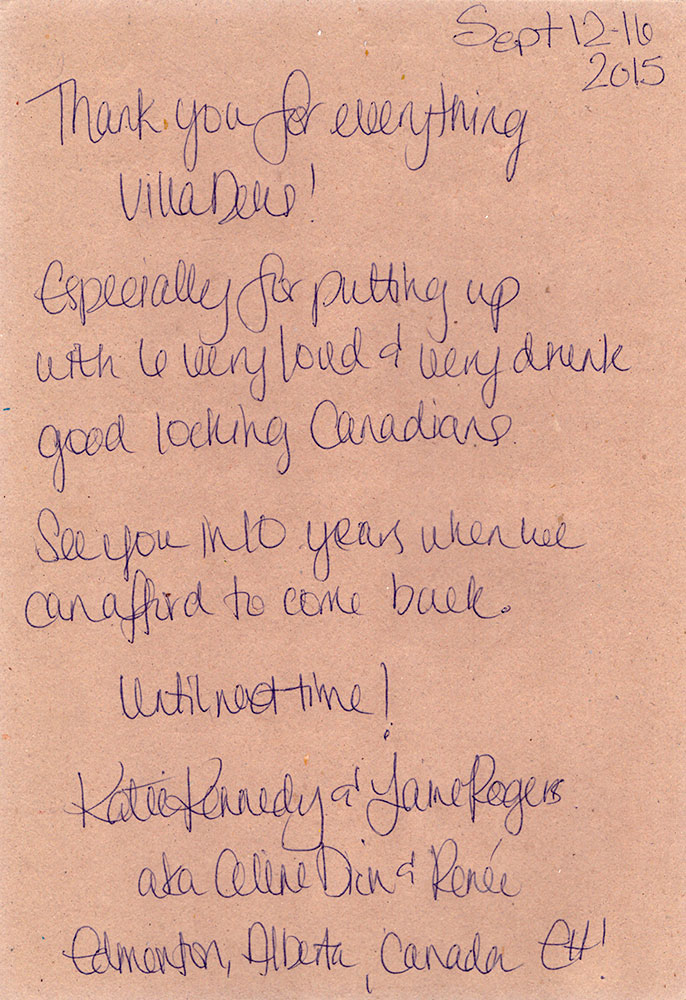 Sept 12-16
2015
Thank you for everything
Villa Deus!
Especially for putting up
with 6 very loud & very drunk
good looking Canadians.
See you in 10 years when we
can afford to come back.
Until next time!
Katie Kennedy & Jame Rogers
aka Celine Dion & Renée
Edmonton, Alberta, Canada EH!